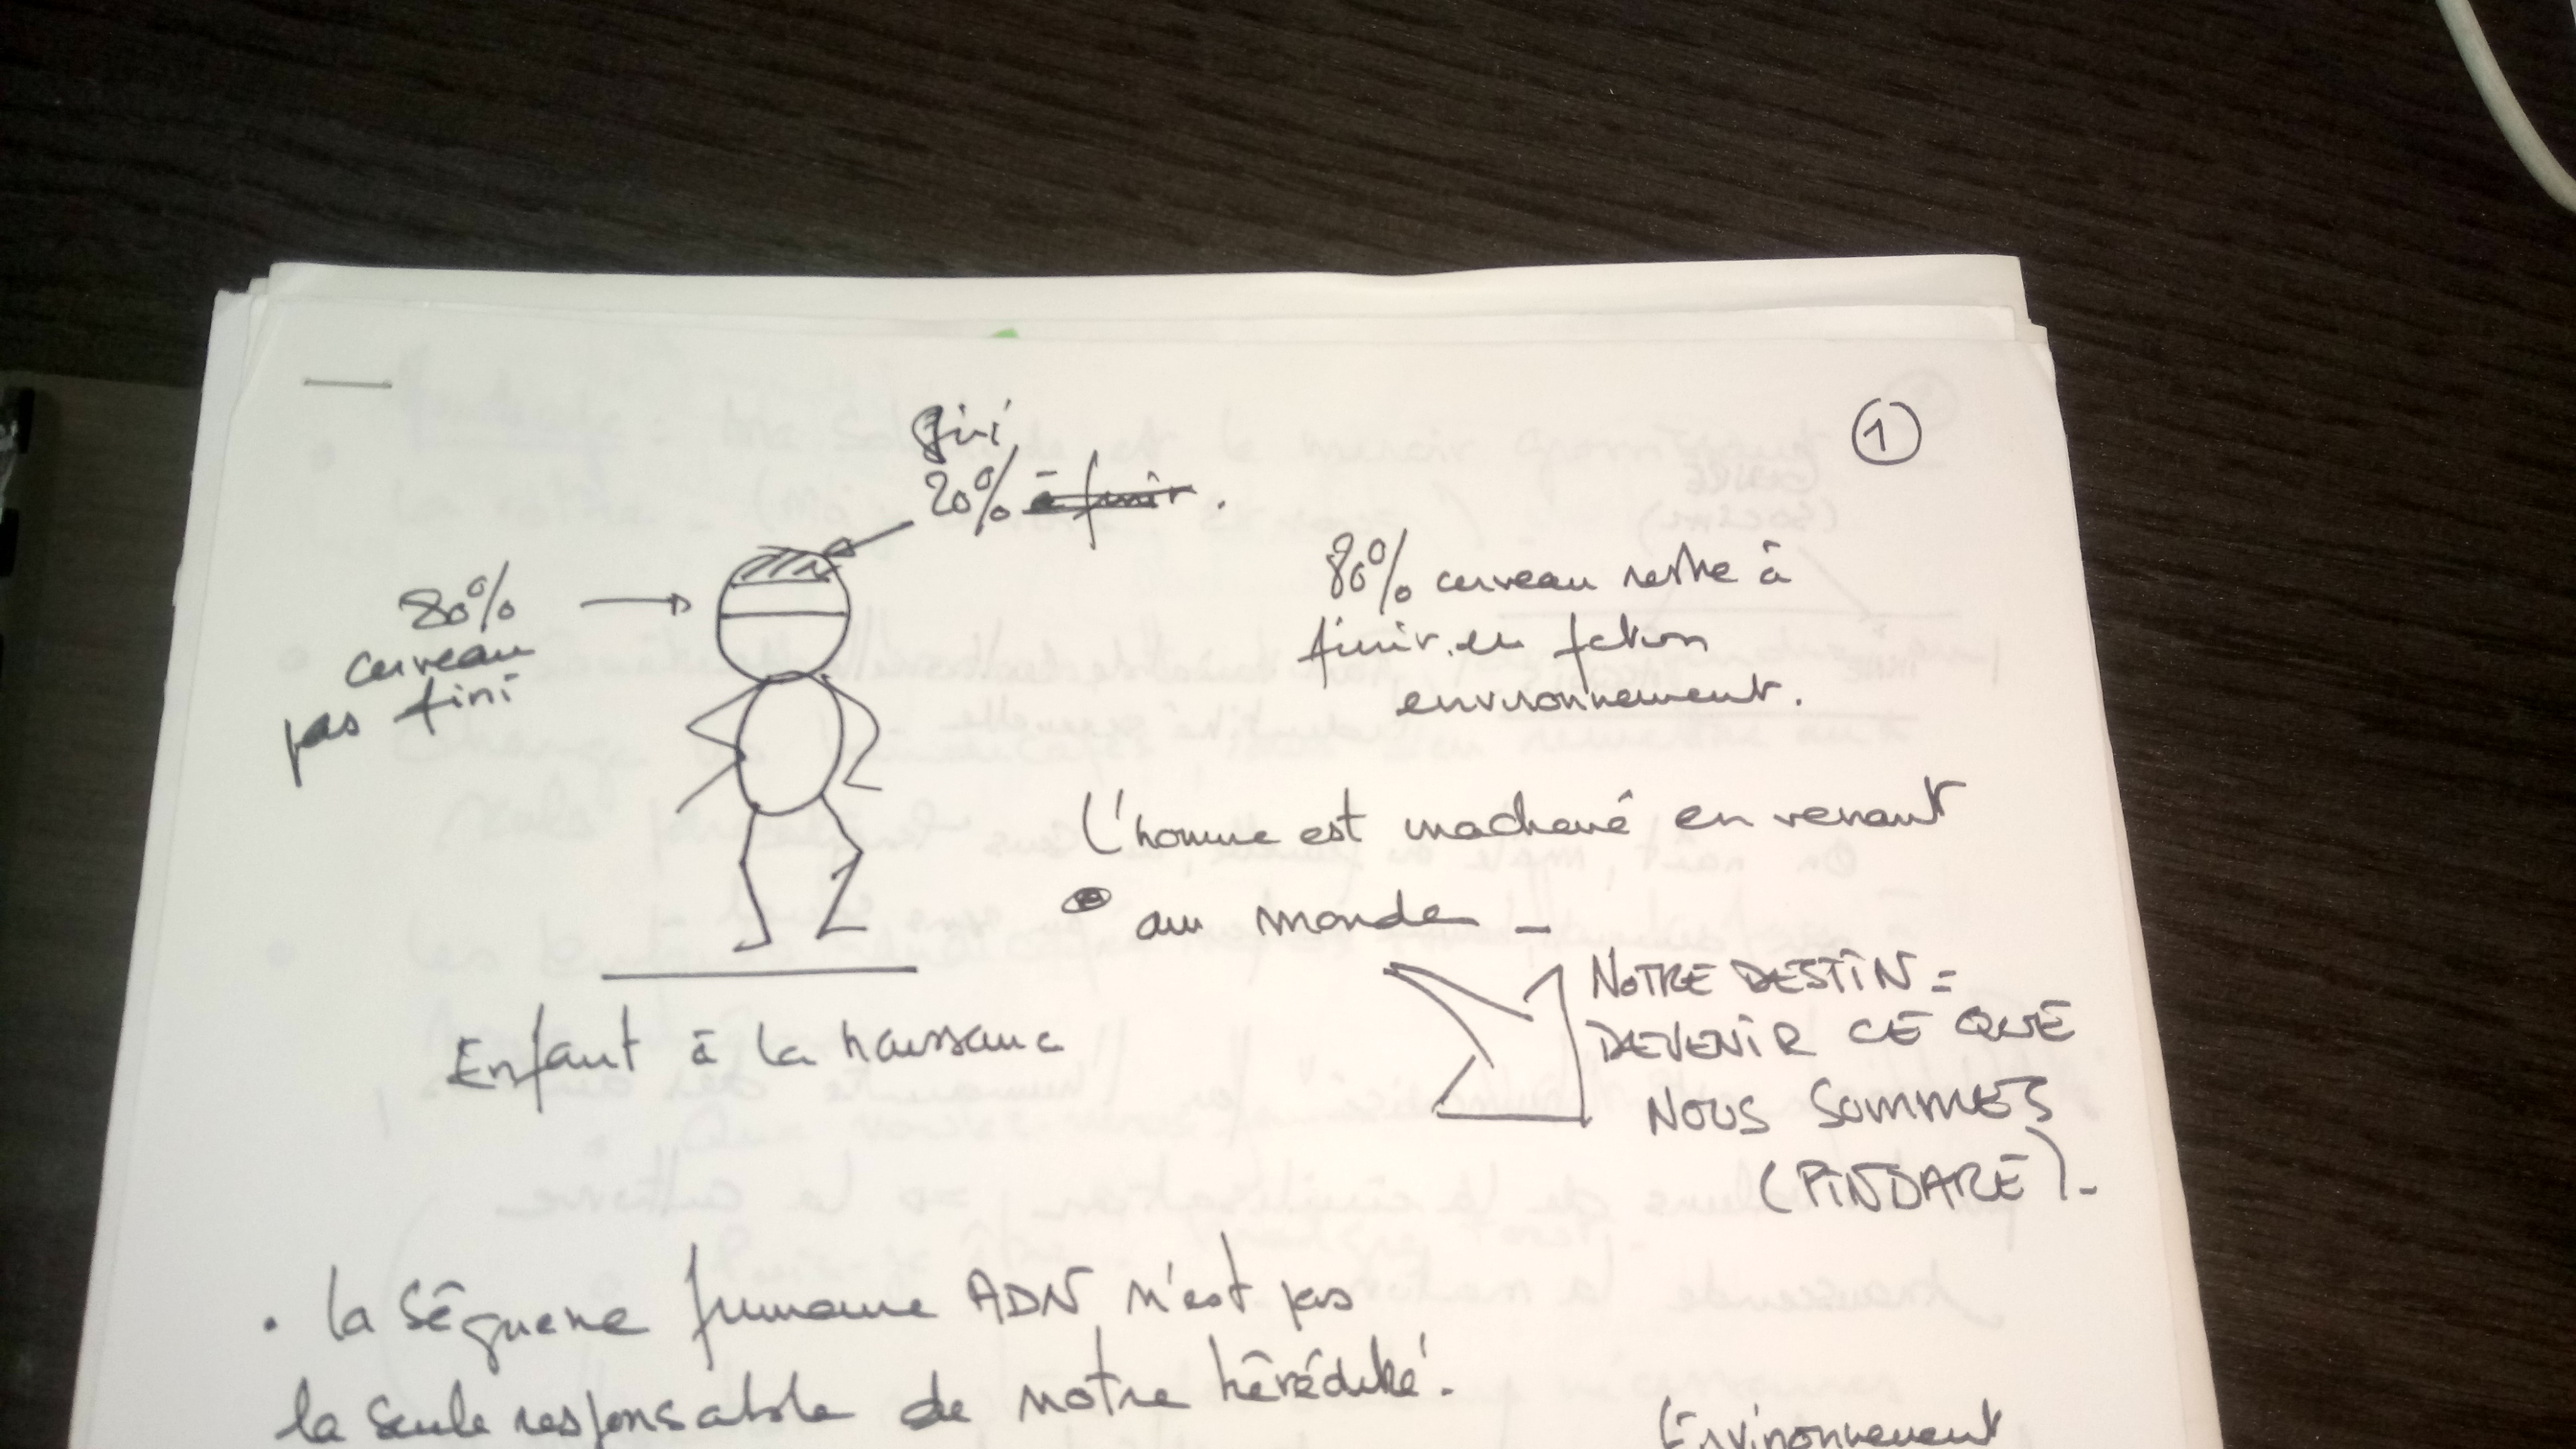 ①
fini
20% à finir.
80%
cerveau
pas fini
80% cerveau reste à
finir, en fction
environnement.
L'homme est inachevé en venant
au monde _
Enfant à la naissance
NOTRE DESTIN =
DEVENIR CE QUE
NOUS SOMMES
(PINDARE).-
. la séquence humaine ADN n'est pas
la seule responsable de notre hérédité.
(Environnement